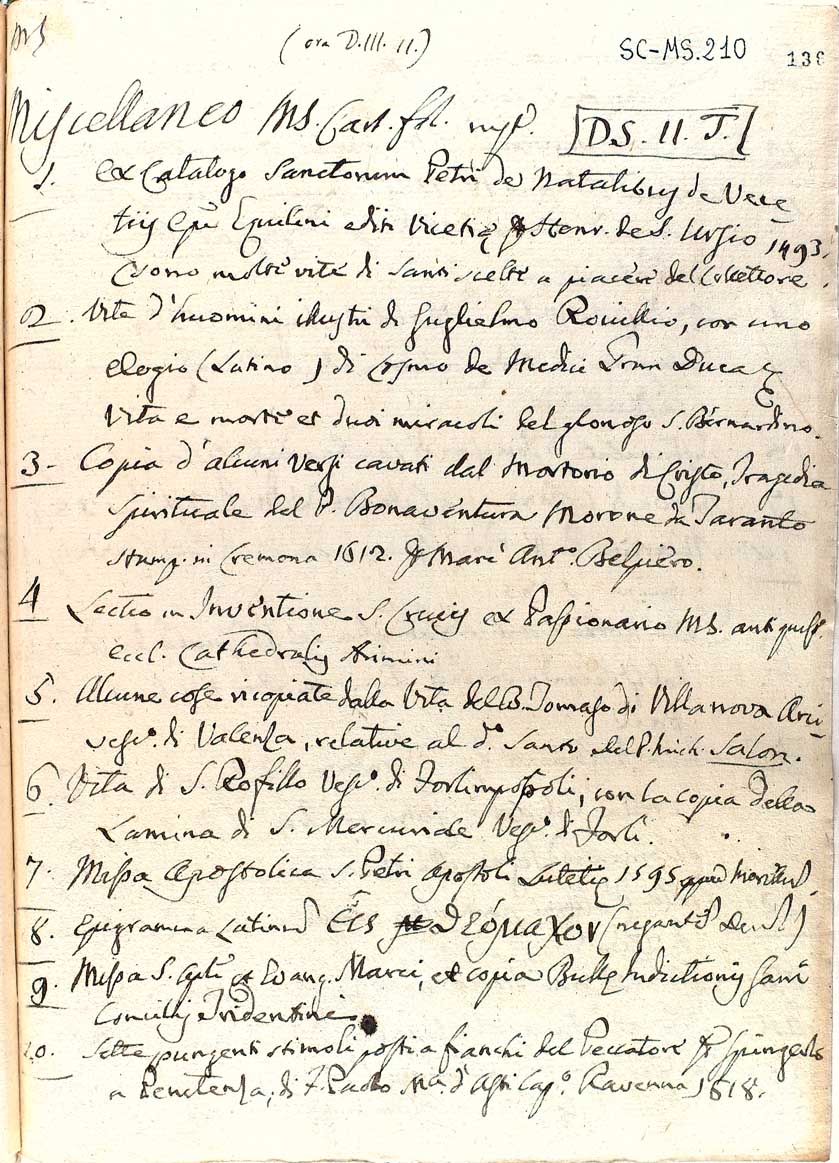 MS
(ora D.III.II.)
SC-MS.210
136
Miscellaneo MS. Cart. fol.
D.S.II.J.
1. ex Catalogo Sanctorum Petri de Natalibus de Vene
tiis Epi Equilini editi Vicetię Henr. de S. Ursio 1493.
(sono molte vite di Santi scelte a piacere del Collettore.
2. Vite d'huomini illustri di Guglielmo Rouillio, con uno
elogio (Latino) di Cosmo de Medici Gran Duca
Vita e morte et duoi miracoli del glorioso S. Bernardino.
3. Copia d'alcuni versi cavati dal Mortorio di Cristo, Tragedia
Spirituale del P. Bonaventura Morone da Taranto
stamp. in Cremona 1612. Marc' Ant.o Belpiero.
4 Lectio in Inventione S. Crucis ex Passionario MS. antiquiss.
eccl. Cathedralis Arimini
5. Alcune cose ricopiate dalla Vita del B. Tomaso di Villanova Arci
vesc.o di Valenza, relative al d.o Santo del P. Mich. Salon.
6. Vita di S. Rofillo Vesc.o di Forlimpopoli, con la copia della
Lamina di S. Mercuriale Vesc.o di Forlì.
7. Missa Apostolica S. Petri Apostoli Lutetię 1595 apud
8. Epigramma Latinum Εἰς Θεόμαχον (negant
9. Missa S. Evang. Marci, et copia Bullę Indictionis Sacri
Concilij Tridentini
10. Sette pungenti stimoli posti a fianchi del Peccatore spingerlo
a Penitenza, di F. Paolo M.a d' Cap.o Ravenna 1618.